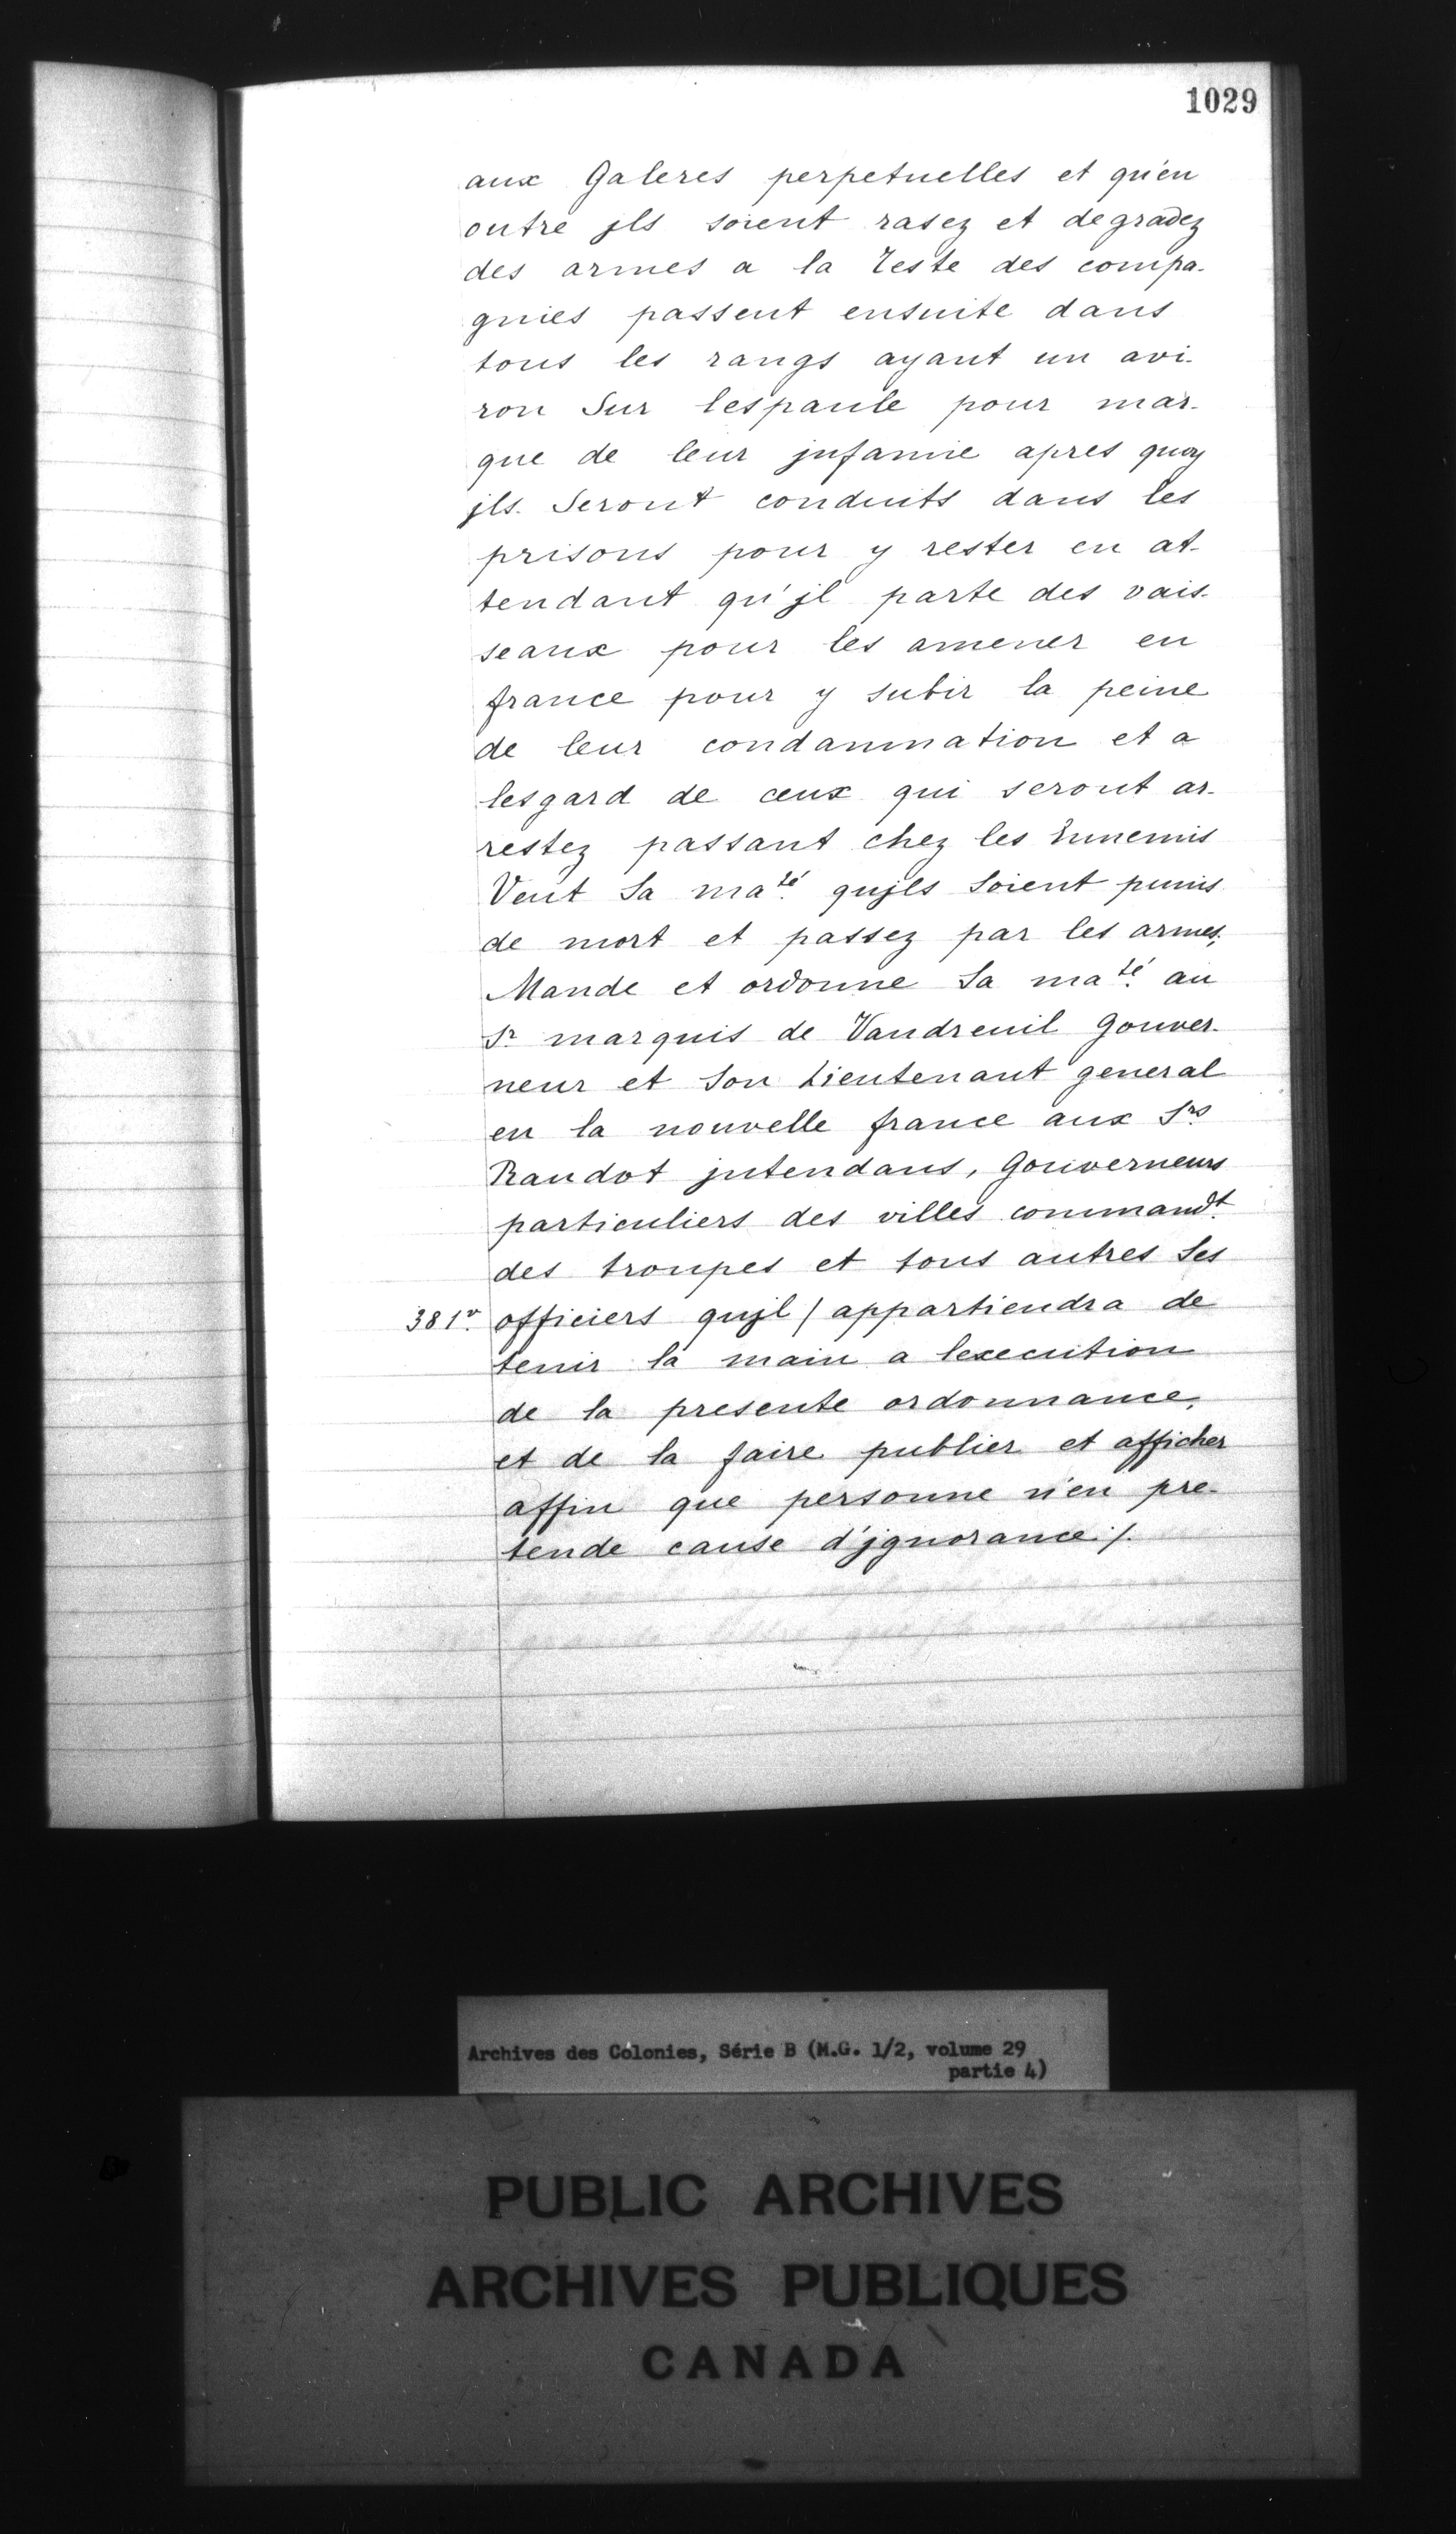 1029
aux Galeres perpetuelles et qu'en
outre jls soient rasez et degradez
des armes a la Teste des compa-
gnies passent ensuite dans
tous les rangs ayant un avi-
ron Sur lespaule pour mar-
que de leur jnfamie apres quoy
jls Seront conduits dans les
prisons pour y rester en at-
tendant qu'jl parte des vais-
seaux pour les amener en
france pour y subir la peine
de leur condamnation et a
lesgard de ceux qui seront ar-
restez passant chez les Ennemis
Veut Sa ma.té qujls Soient punis
de mort et passez par les armes,
Mande et ordonne Sa ma.té au
Sr marquis de Vaudreuil Gouver-
neur et Son Lieutenant general
en la nouvelle france aux Srs
Raudot jntendans, Gouverneurs
particuliers des villes commandt.
des troupes et tous autres Ses
381v. officiers qujl / appartiendra de
tenir la main a lexecution
de la presente ordonnance,
et de la faire publier et afficher
affin que personne n'en pre-
tende cause d'jgnorance ./.
Archives des Colonies, Série B (M.G. 1/2, volume 29
partie 4)
PUBLIC ARCHIVES
ARCHIVES PUBLIQUES
CANADA